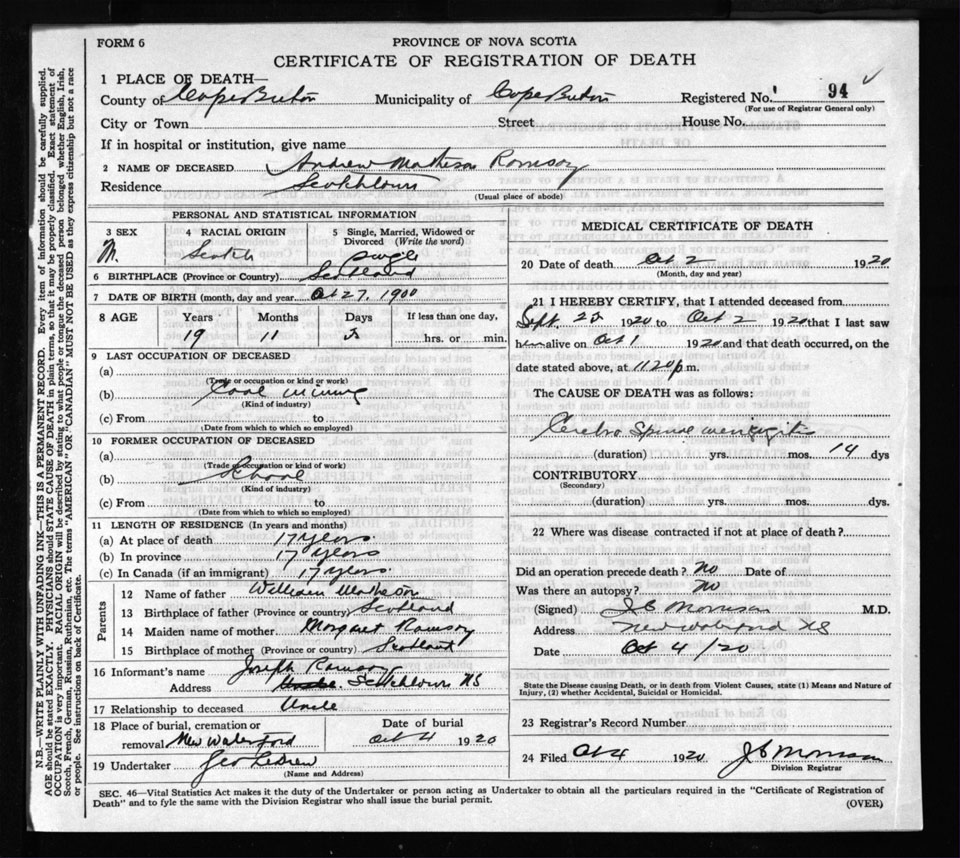 FORM 6
PROVINCE OF NOVA SCOTIA
CERTIFICATE OF REGISTRATION OF DEATH
N.B.—WRITE PLAINLY WITH UNFADING INK—THIS IS A PERMANENT RECORD. Every item of information should be carefully supplied.
AGE should be stated EXACTLY. PHYSICIANS should STATE CAUSE OF DEATH in plain terms, so that it may be properly classified. Exact statement of
OCCUPATION is very important. RACIAL ORIGIN will be described by stating to what people or tongue the deceased person belonged whether English, Irish,
Scotch, French, German, Russian, Ruthenian, etc. The terms "AMERICAN" OR "CANADIAN" MUST NOT BE USED as they express citizenship but not a race
or people. See instructions on back of Certificate.
1 PLACE OF DEATH—
County of Cape Breton Municipality of Cape Breton Registered No. 94
(For use of Registrar General only)
City or Town Street House No.
If in hospital or institution, give name
2 NAME OF DECEASED Andrew Matheson Ramsay
Residence Scotchtown
(Usual place of abode)
PERSONAL AND STATISTICAL INFORMATION
3 SEX 4 RACIAL ORIGIN 5 Single, Married, Widowed or Divorced (Write the word)
M. Scotch Single
6 BIRTHPLACE (Province or Country) Scotland
7 DATE OF BIRTH (month, day and year) Oct 27, 1900
8 AGE Years Months Days If less than one day,
19 11 5 hrs. or min.
9 LAST OCCUPATION OF DECEASED
(a)
(Trade or occupation or kind or work)
(b) Coal mining
(Kind of industry)
(c) From to
(Date from which to which so employed)
10 FORMER OCCUPATION OF DECEASED
(a)
(Trade or occupation or kind of work)
(b) School
(Kind of industry)
(c) From to
(Date from which to which so employed)
11 LENGTH OF RESIDENCE (In years and months)
(a) At place of death 17 years
(b) In province 17 years
(c) In Canada (if an immigrant) 17 years
Parents
12 Name of father William Matheson
13 Birthplace of father (Province or country) Scotland
14 Maiden name of mother Margaret Ramsay
15 Birthplace of mother (Province or country) Scotland
16 Informant's name Joseph Ramsay
Address Scotchtown NS
17 Relationship to deceased Uncle
18 Place of burial, cremation or Date of burial
removal New Waterford Oct 4 1920
19 Undertaker Geo LeDrew
(Name and Address)
MEDICAL CERTIFICATE OF DEATH
20 Date of death Oct 2 1920
(Month, day and year)
21 I HEREBY CERTIFY, that I attended deceased from
Sept. 25 1920 to Oct 2 1920 that I last saw
him alive on Oct 1 1920 and that death occurred, on the
date stated above, at 11.20 p.m.
The CAUSE OF DEATH was as follows:
Cerebro Spinal meningitis
(duration) yrs. mos. 14 dys
CONTRIBUTORY
(Secondary)
(duration) yrs. mos. dys.
22 Where was disease contracted if not at place of death?
Did an operation precede death? No Date of
Was there an autopsy? No
(Signed) J C Morrison M.D.
Address New Waterford NS
Date Oct 4 /20
State the Disease causing Death, or in death from Violent Causes, state (1) Means and Nature of
Injury, (2) whether Accidental, Suicidal or Homicidal.
23 Registrar's Record Number
24 Filed Oct 4 1920 J C Morrison
Division Registrar
SEC. 46—Vital Statistics Act makes it the duty of the Undertaker or person acting as Undertaker to obtain all the particulars required in the "Certificate of Registration of
Death" and to fyle the same with the Division Registrar who shall issue the burial permit.
(OVER)